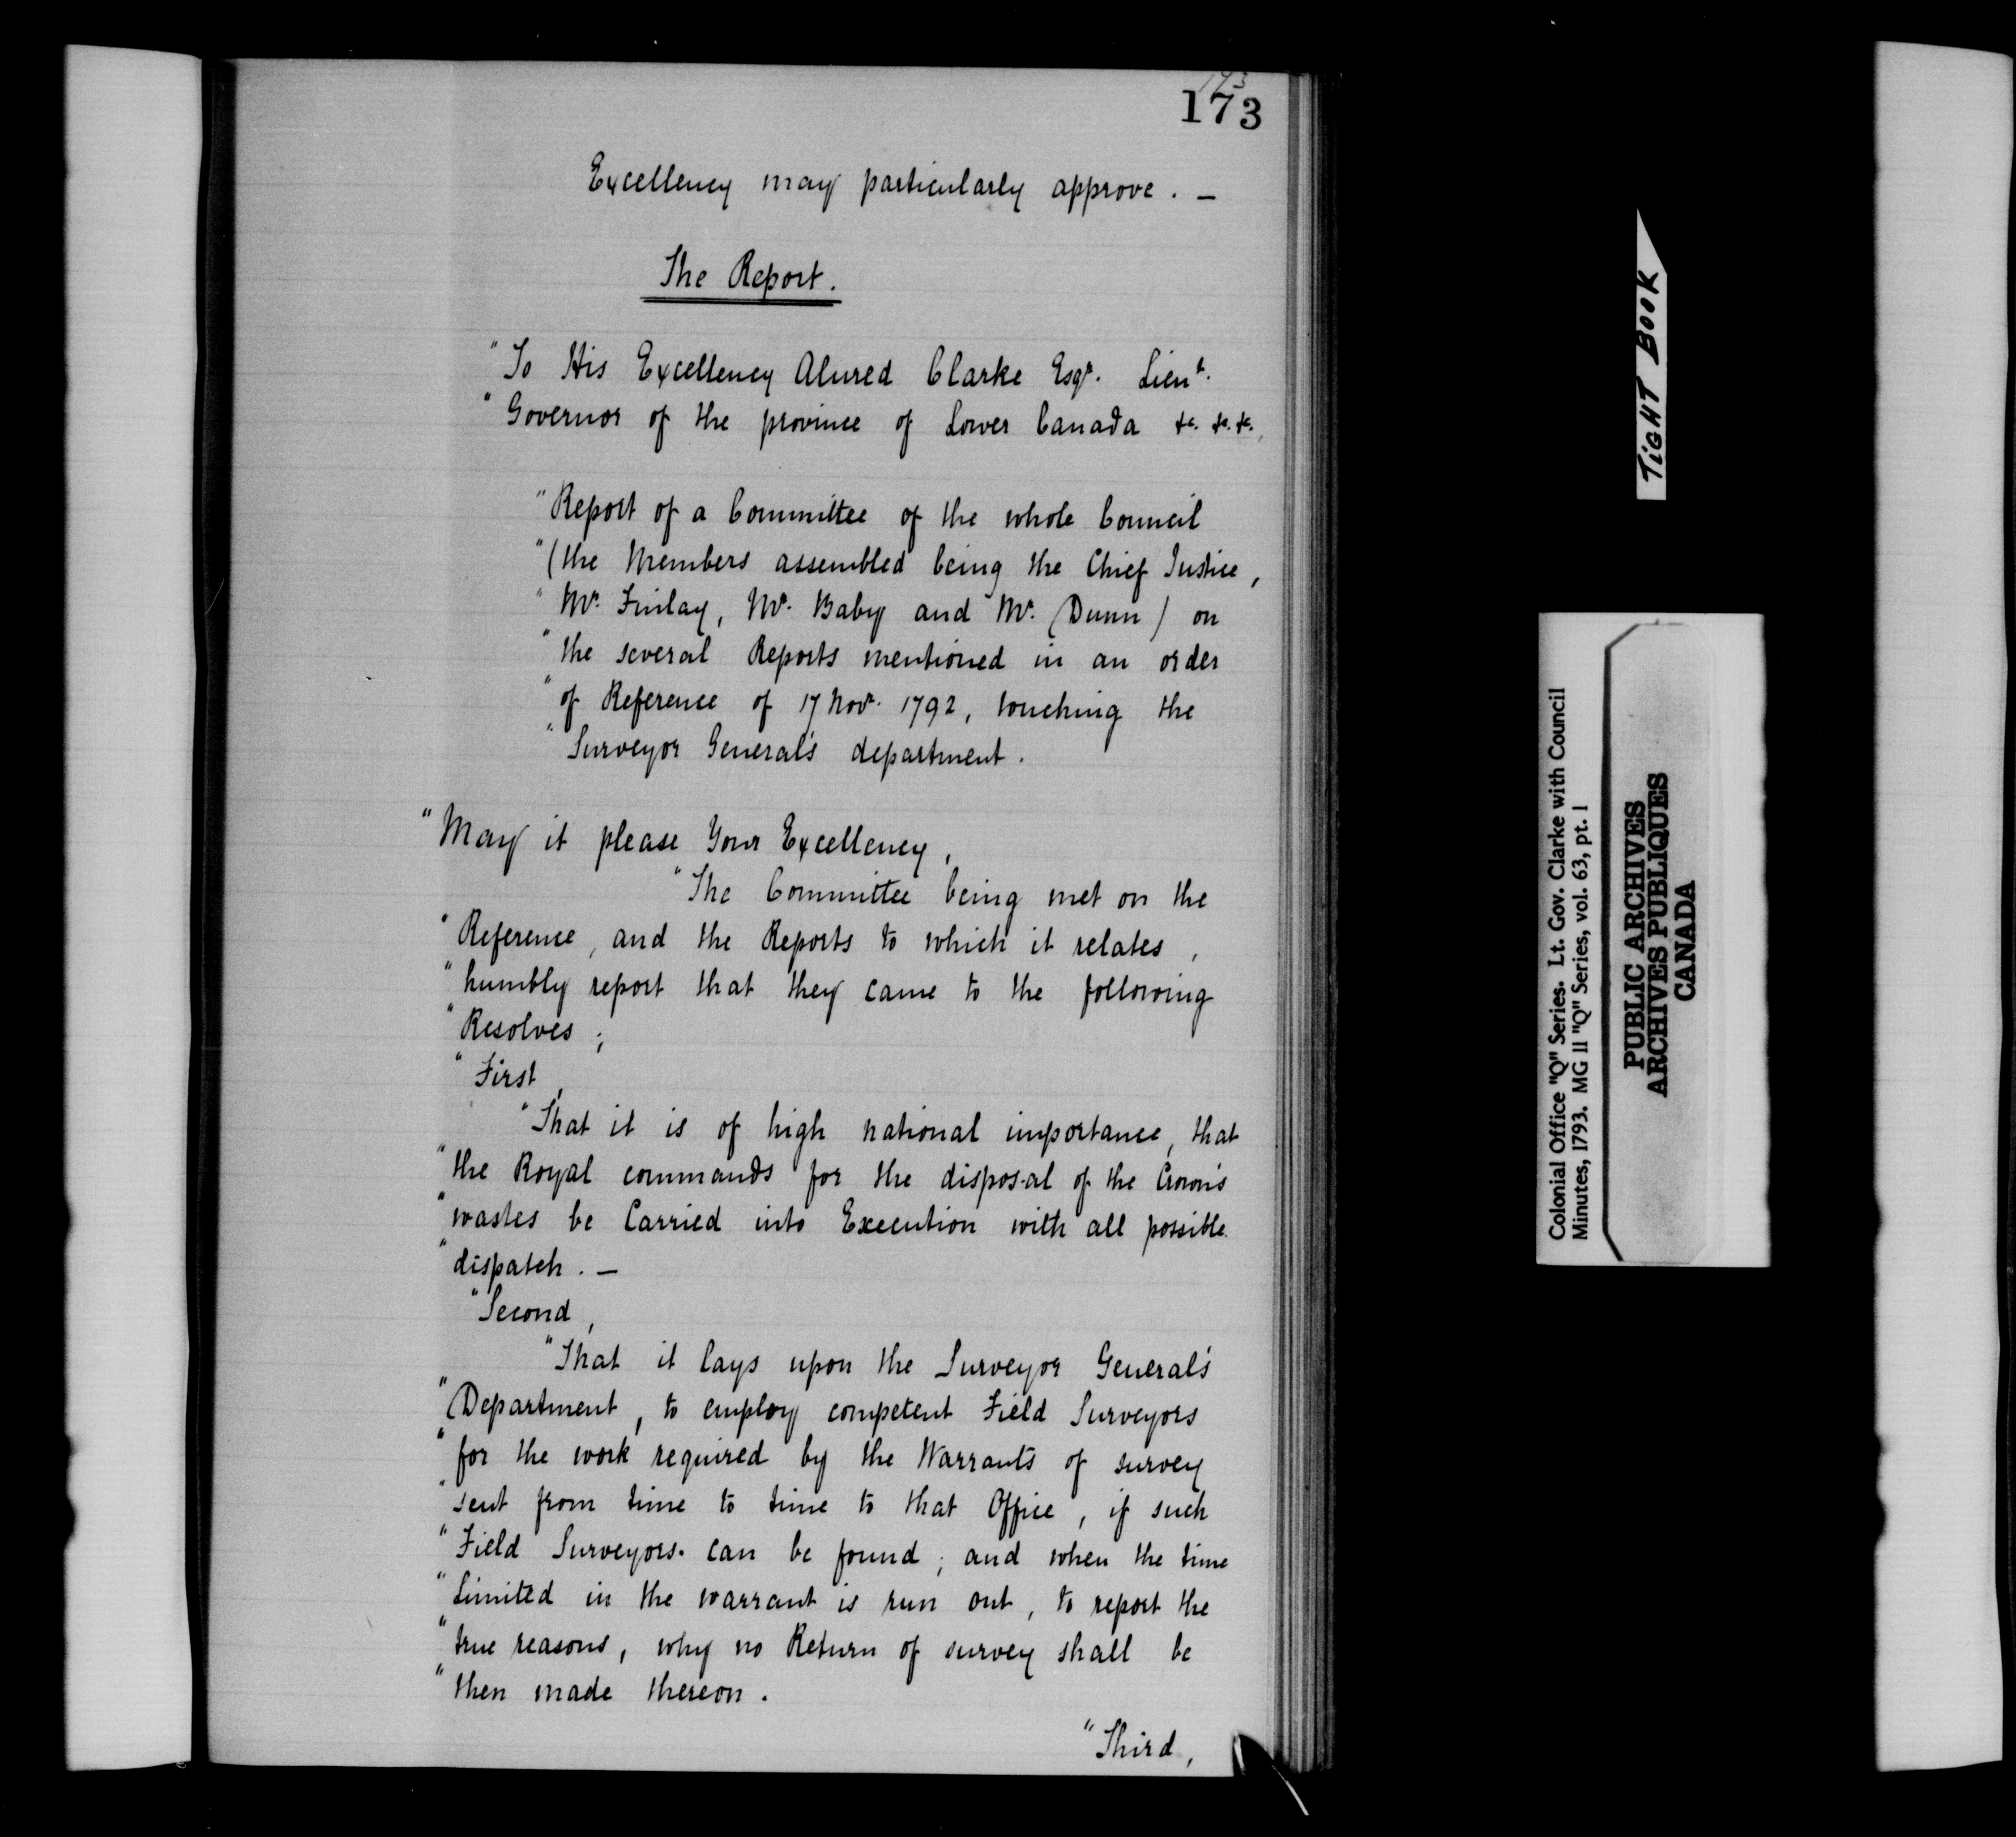 173
173
Excellency may particularly approve. —
The Report.
"To His Excellency Alured Clarke Esqr. Lieut.
"Governor of the province of Lower Canada &c. &c. &c.
"Report of a Committee of the whole Council
"(the Members assembled being the Chief Justice,
"Mr. Finlay, Mr. Baby and Mr. Dunn) on
"the several Reports mentioned in an order
"of Reference of 17 Novr. 1792, touching the
"Surveyor General's department.
"May it please Your Excellency,
"The Committee being met on the
"Reference, and the Reports to which it relates,
"humbly report that they came to the following
"Resolves;
"First,
"That it is of high national importance, that
"the Royal commands for the disposal of the Crown's
"wastes be Carried into Execution with all possible
"dispatch. —
"Second,
"That it lays upon the Surveyor General's
"Department, to employ competent Field Surveyors
"for the work required by the Warrants of survey
"sent from time to time to that Office, if such
"Field Surveyors. can be found; and when the time
"Limited in the warrant is run out, to report the
"true reasons, why no Return of survey shall be
"then made thereon.
"Third,
TIGHT BOOK
Colonial Office "Q" Series. Lt. Gov. Clarke with Council
Minutes, 1793. MG 11 "Q" Series, vol. 63, pt. 1
PUBLIC ARCHIVES
ARCHIVES PUBLIQUES
CANADA